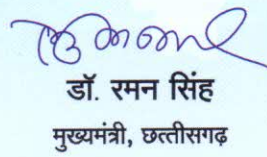 डॉ. रमन सिंह
मुख्यमंत्री, छत्तीसगढ़